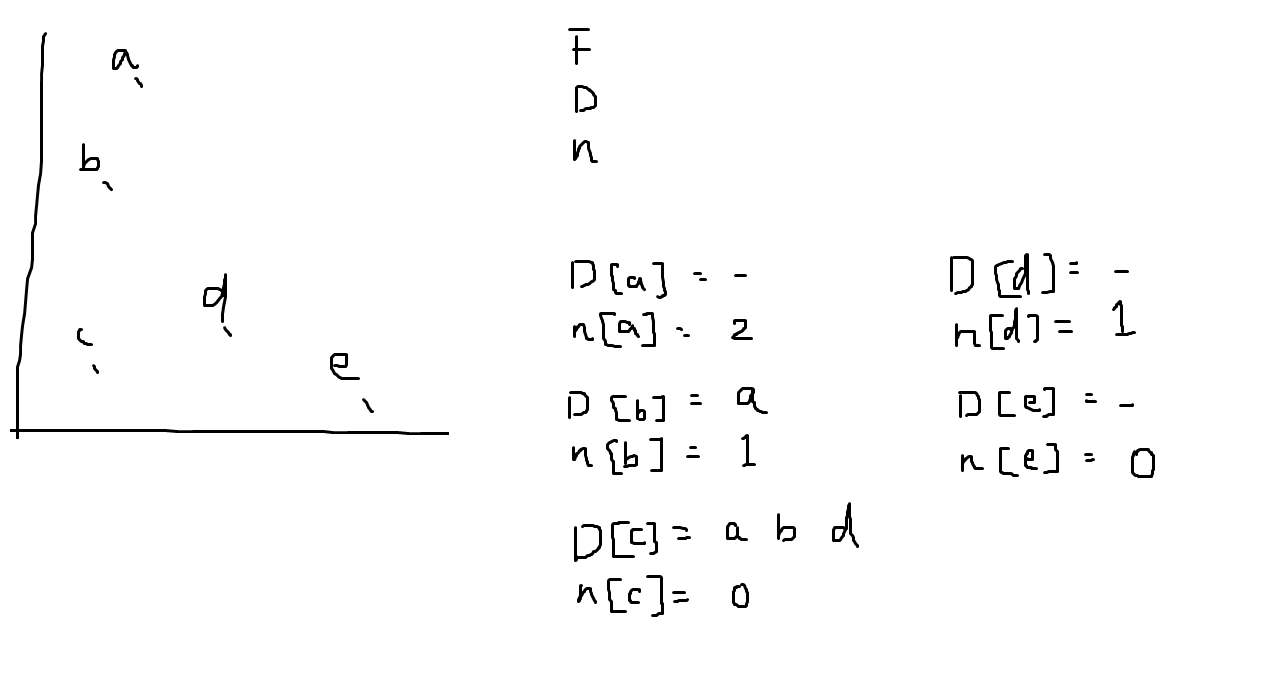 a
b
c
d
e
F
D
n
D[a] = -
n[a] = 2
D[b] = a
n[b] = 1
D[c] = a b d
n[c] = 0
D[d] = -
n[d] = 1
D[e] = -
n[e] = 0